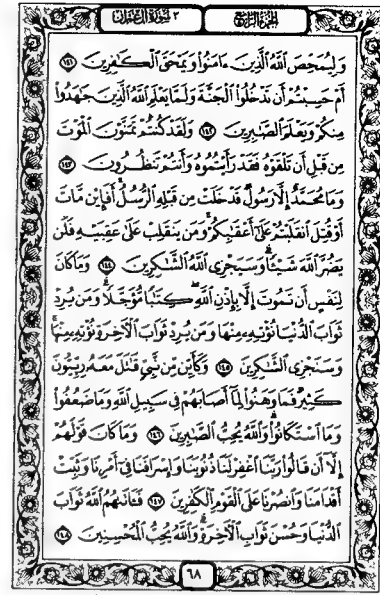 الجزء الرابع
٣ سورة آل عمران
وَلِيُمَحِّصَ ٱللَّهُ ٱلَّذِينَ ءَامَنُوا۟ وَيَمْحَقَ ٱلْكَٰفِرِينَ ١٤١
أَمْ حَسِبْتُمْ أَن تَدْخُلُوا۟ ٱلْجَنَّةَ وَلَمَّا يَعْلَمِ ٱللَّهُ ٱلَّذِينَ جَٰهَدُوا۟
مِنكُمْ وَيَعْلَمَ ٱلصَّٰبِرِينَ ١٤٢ وَلَقَدْ كُنتُمْ تَمَنَّوْنَ ٱلْمَوْتَ
مِن قَبْلِ أَن تَلْقَوْهُ فَقَدْ رَأَيْتُمُوهُ وَأَنتُمْ تَنظُرُونَ ١٤٣
وَمَا مُحَمَّدٌ إِلَّا رَسُولٌ قَدْ خَلَتْ مِن قَبْلِهِ ٱلرُّسُلُ أَفَإِي۟ن مَّاتَ
أَوْ قُتِلَ ٱنقَلَبْتُمْ عَلَىٰٓ أَعْقَٰبِكُمْ وَمَن يَنقَلِبْ عَلَىٰ عَقِبَيْهِ فَلَن
يَضُرَّ ٱللَّهَ شَيْـًٔا وَسَيَجْزِى ٱللَّهُ ٱلشَّٰكِرِينَ ١٤٤ وَمَا كَانَ
لِنَفْسٍ أَن تَمُوتَ إِلَّا بِإِذْنِ ٱللَّهِ كِتَٰبًا مُّؤَجَّلًا وَمَن يُرِدْ
ثَوَابَ ٱلدُّنْيَا نُؤْتِهِۦ مِنْهَا وَمَن يُرِدْ ثَوَابَ ٱلْءَاخِرَةِ نُؤْتِهِۦ مِنْهَا
وَسَنَجْزِى ٱلشَّٰكِرِينَ ١٤٥ وَكَأَيِّن مِّن نَّبِىٍّ قَٰتَلَ مَعَهُۥ رِبِّيُّونَ
كَثِيرٌ فَمَا وَهَنُوا۟ لِمَآ أَصَابَهُمْ فِى سَبِيلِ ٱللَّهِ وَمَا ضَعُفُوا۟
وَمَا ٱسْتَكَانُوا۟ وَٱللَّهُ يُحِبُّ ٱلصَّٰبِرِينَ ١٤٦ وَمَا كَانَ قَوْلَهُمْ
إِلَّآ أَن قَالُوا۟ رَبَّنَا ٱغْفِرْ لَنَا ذُنُوبَنَا وَإِسْرَافَنَا فِىٓ أَمْرِنَا وَثَبِّتْ
أَقْدَامَنَا وَٱنصُرْنَا عَلَى ٱلْقَوْمِ ٱلْكَٰفِرِينَ ١٤٧ فَـَٔاتَىٰهُمُ ٱللَّهُ ثَوَابَ
ٱلدُّنْيَا وَحُسْنَ ثَوَابِ ٱلْءَاخِرَةِ وَٱللَّهُ يُحِبُّ ٱلْمُحْسِنِينَ ١٤٨
٦٨